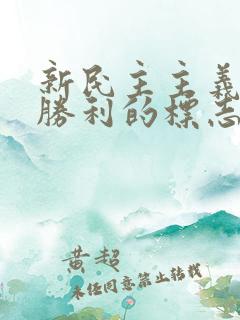 新民主主義
勝利的標志
黄超
未经同意禁止转载